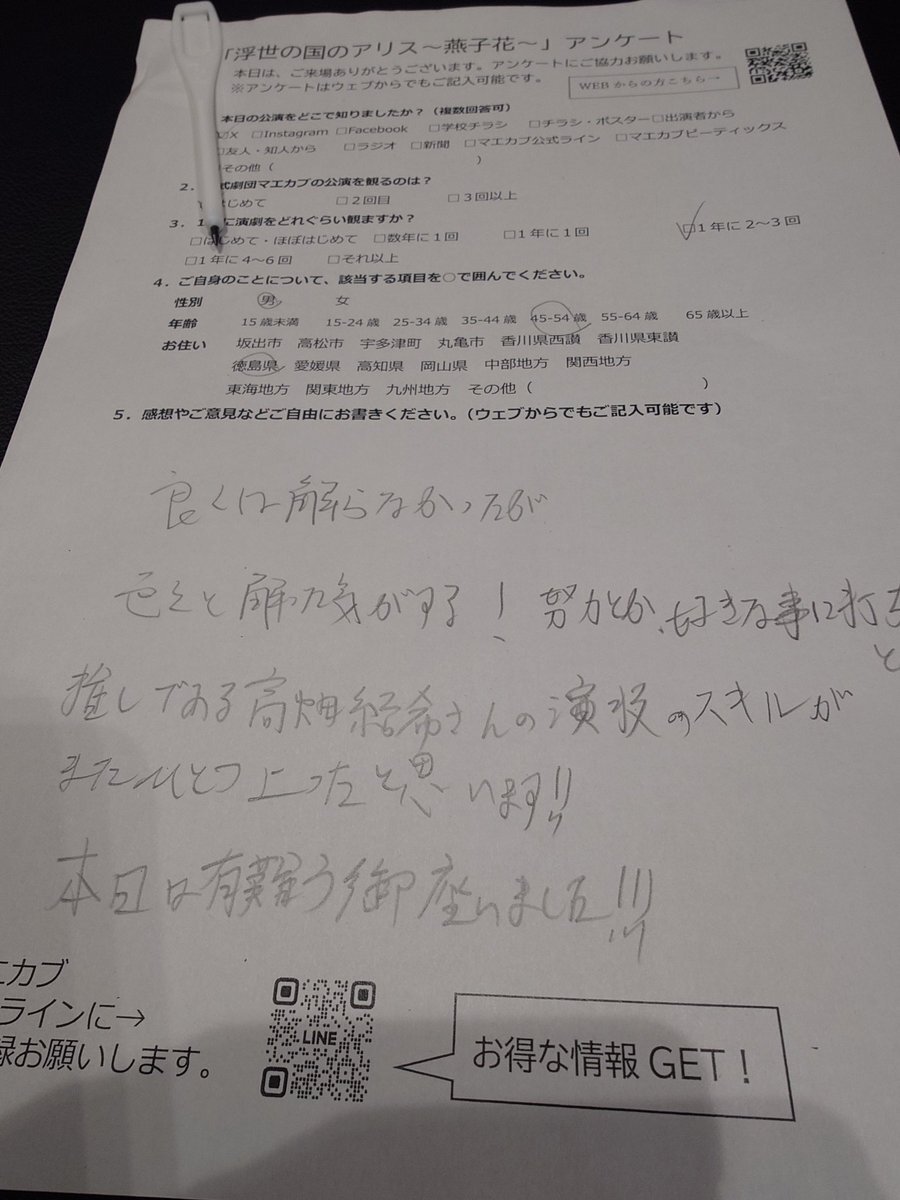 「浮世の国のアリス～燕子花～」アンケート
本日は、ご来場ありがとうございます。アンケートにご協力お願いします。
※アンケートはウェブからでもご記入可能です。
WEBからの方こちら→
本日の公演をどこで知りましたか？（複数回答可）
☑X □Instagram □Facebook □学校チラシ □チラシ・ポスター □出演者から
□友人・知人から □ラジオ □新聞 □マエカブ公式ライン □マエカブピーティックス
その他（ ）
2. 式劇団マエカブの公演を観るのは？
はじめて □2回目 □3回以上
3. 1 に演劇をどれぐらい観ますか？
□はじめて・ほぼはじめて □数年に1回 □1年に1回 ☑1年に2～3回
□1年に4～6回 □それ以上
4. ご自身のことについて、該当する項目を○で囲んでください。
性別 男 女
年齢 15歳未満 15-24歳 25-34歳 35-44歳 45-54歳 55-64歳 65歳以上
お住い 坂出市 高松市 宇多津町 丸亀市 香川県西讃 香川県東讃
徳島県 愛媛県 高知県 岡山県 中部地方 関西地方
東海地方 関東地方 九州地方 その他（ ）
5. 感想やご意見などご自由にお書きください。（ウェブからでもご記入可能です）
良くは解らなかったが
色々と解った気がする！ 努力とか、好きな事に打ち
と
推しである高畑結希さんの演技のスキルが
またひとつ上ったと思います!!
本日は有難う御座いました!!!
エカブ
ラインに→
録お願いします。
LINE
お得な情報GET！